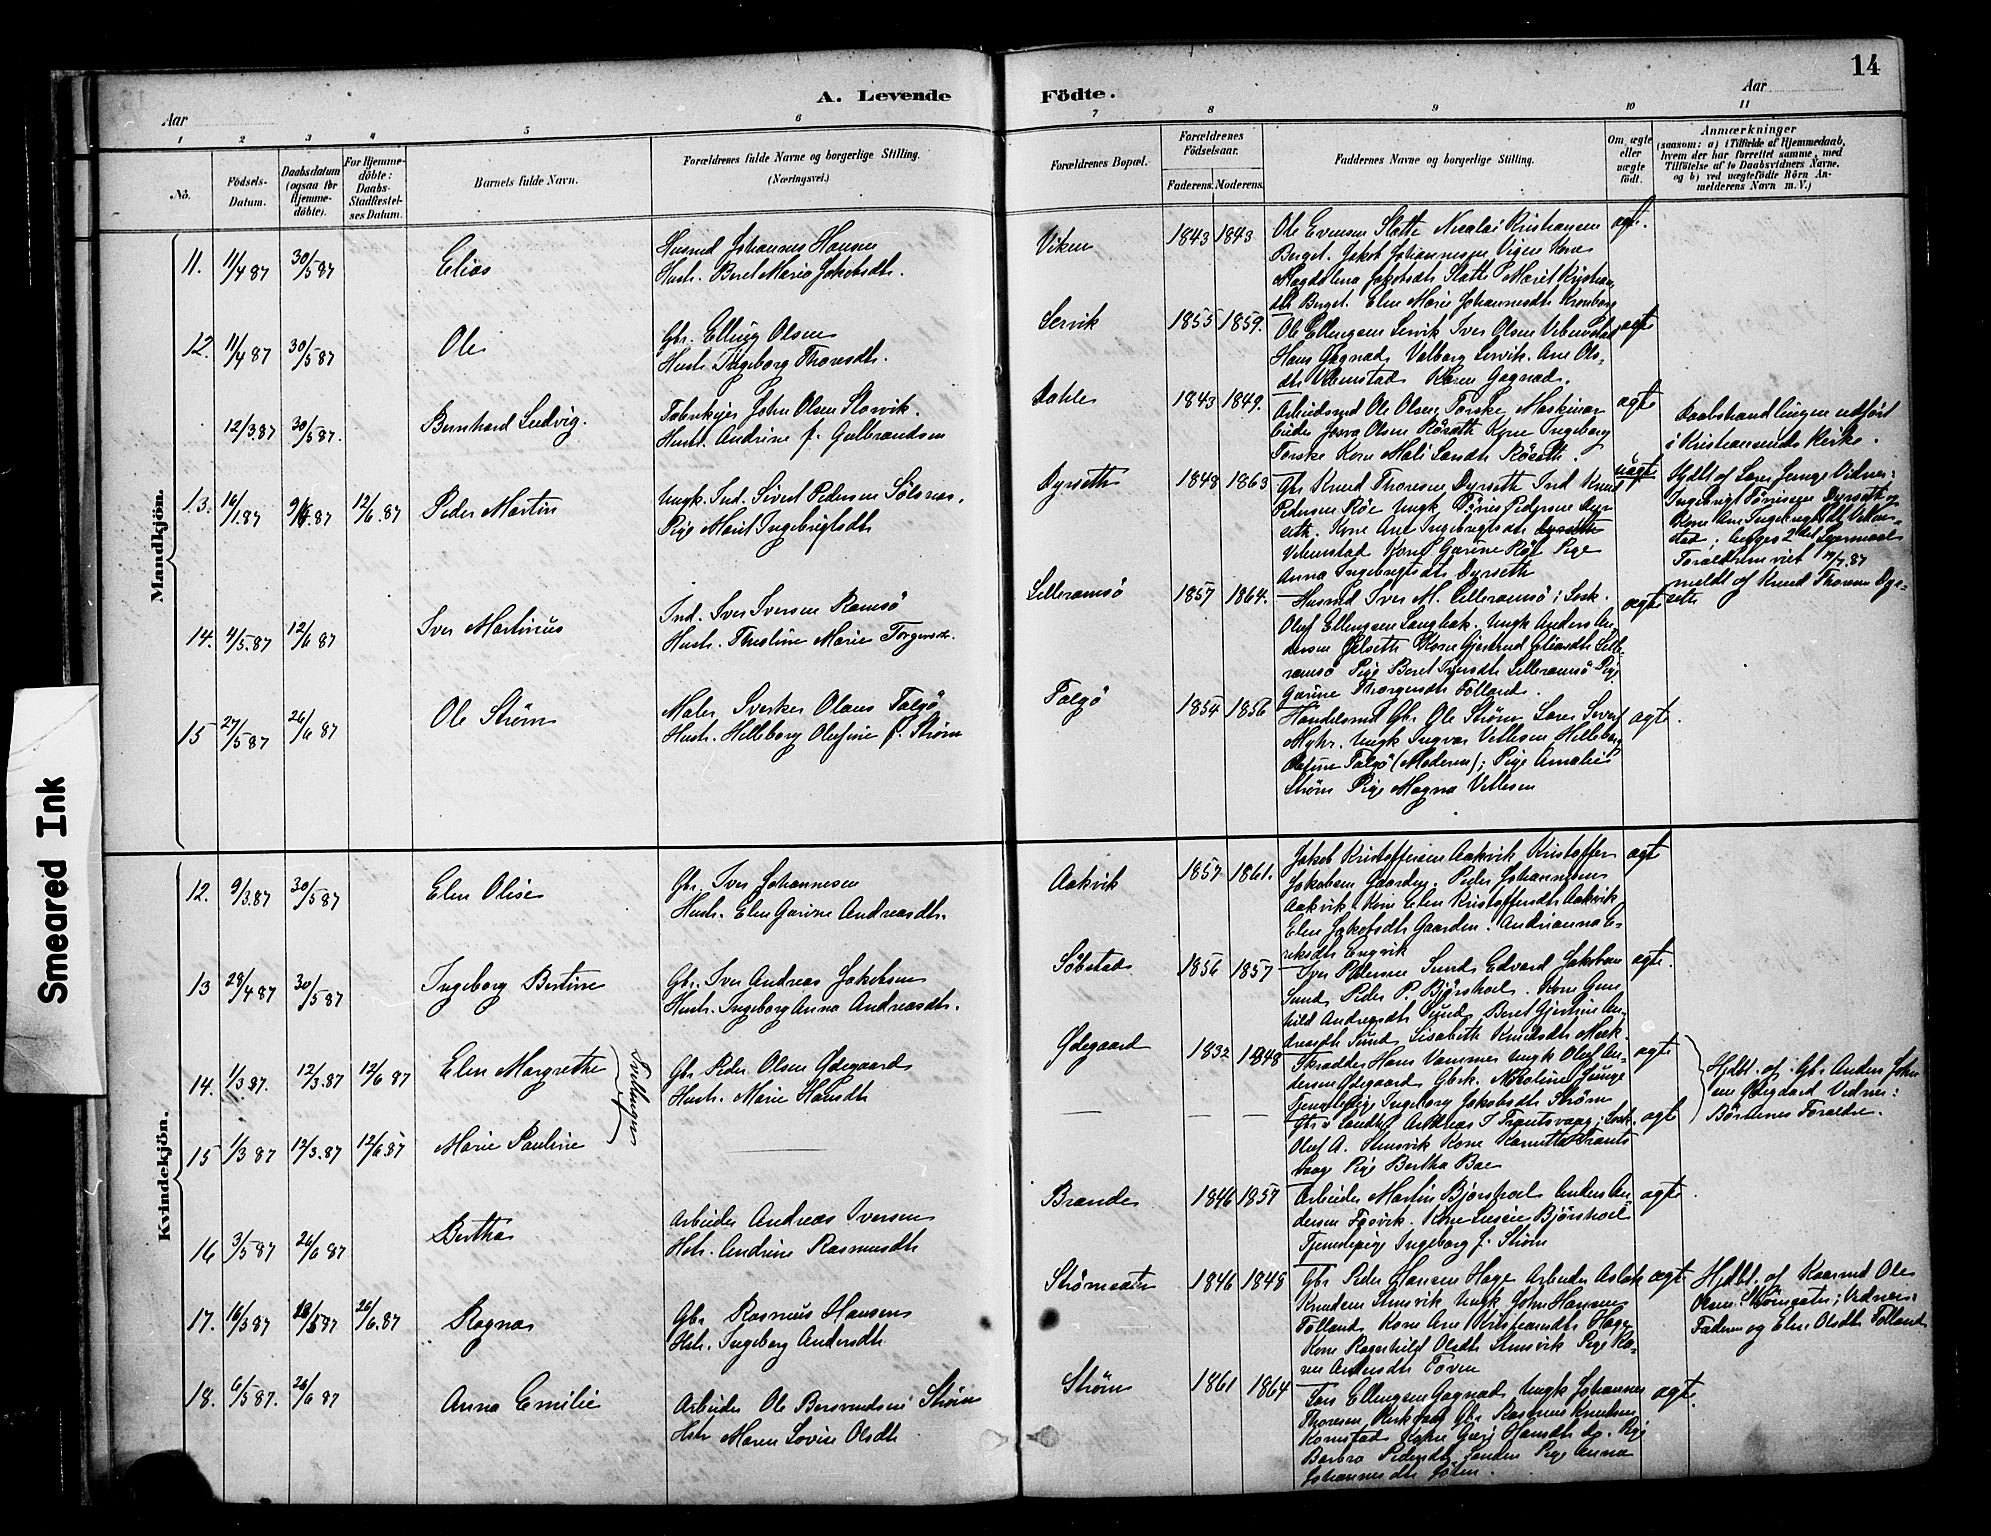 14
A. Levende Födte.
Aar
Aar
1 2 3 4 5 6 7 8 9 10 11
No.
Födsels-Datum.
Daabsdatum (ogsaa for Hjemme-döbte).
For Hjemme-döbte: Daabs-Stadfæstel-ses Datum.
Barnets fulde Navn.
Forældrenes fulde Navne og borgerlige Stilling. (Næringsvei.)
Forældrenes Bopæl.
Forældrenes Födselsaar.
Faderens. Moderens.
Faddernes Navne og borgerlige Stilling.
Om ægte eller uægte födt.
Anmærkninger
(saasom: a) i Tilfælde af Hjemmedaab,
hvem der har forrettet samme, med
Tilföielse af to Daabsvidners Navne.
og b) ved uægtefödte Börn An-
melderens Navn m. V.)
Mandkjön.
11. 11/4 87 30/5 87 Elias
Husmd Johannes Hansen
Hustr. Beret Maria Jakobsdtr.
Viken 1843 1843
Ole Evensen Slatte Nicolai Kristiansen
Berget. Jakob Johannessen Vigen Kone
Magdalena Jakobsdtr Slatte Marit Kristian
dtr Berget. Elen Marie Johannesdtr
ægte.
12. 11/4 87 30/5 87 Ole
Gbr. Elling Olsen
Hustr. Ingeborg Thoresdtr.
Lervik 1855 1859.
Ole Ellingsen Lervik Iver Olsen Vebenstad
Hans Gagnad Valborg Lervik. Ane Ols-
dtr Vebenstad Karen Gagnad.
ægte
12/3.87 30/5 87. Bernhard Ludvig.
John Olsen Storvik.
Hustr. Andrine f. Gulbrandsen
Dahle 1843 1849.
Arbeidsmd Ole Olsen Torske
Olsen Röseth Kone Ingeborg
Torske Kone Röseth.
ægte
Daabshandlingen udfört
i Kristiansunds Kirke.
13. 16/1.87 87 12/6.87 Peder Martin
Ungk. Ind. Sivert Pedersen Sölsnes.
Pige Marit Ingebrigtsdtr
Dyrseth 1848 1863
Gbr Knud Thoresen Dyrseth Ind Knud
Pedersen Röe Ungk Tönnes Pedersen Dyr
seth. Kone Ane Ingebrigtsdtr
Vebenstad Kone Gurine Röe Pige
Anna Ingebrigtsdtr Dyrseth
uægte
Hjdbt af Lars Junge Vidner:
Ingebrigt Tönnesen Dyrseth og
Kone Ane Ingebrigtsdtr Veben-
stad; begges 2det Leiermaal
Forældrene viet 19/7.87
meldt af Knud Thoresen Dyr-
seth
14. 4/5.87 12/6 87 Iver Martinus
Ind. Iver Iversen Ramsö
Hustr. Thestine Marie Torgersdtr.
Lilleramsö 1857 1864.
Husmd Iver M. Lilleramsö; Losk.
Oluf Ellingsen Langbak. Ungk Anders An
dersen Kone Gjertrud Eliasdtr Lille-
ramsö Pige Beret Iversdtr Lilleramsö Pige
Gurine Thorgersdtr Folland.
ægte
15 27/5 87 26/6 87 Ole Ström
Maler Sverker Olaus Talgö
Hustr. Hilleborg Olufine f. Ström
Talgö 1854 1856
Handelsmd Gbr Ole Ström Lærer Sivert
Myhr. Ungk Ingvar Vettesen Hilleborg
Olufine Talgö (Moderen); Pige Amalie
Ström Pige Magna Vettesen
ægte.
Kvindekjön.
12. 9/3.87 30/5 87 Elen Olise
Gbr. Iver Johannesen
Hustr. Elen Gurine Andreasdtr.
Aakvik 1857 1861.
Jakob Kristoffersen Aakvik Kristoffer
Jakobsen Gaarden. Peder Johannesen
Aakvik. Kone Elen Kristoffersdtr Aakvik
Elen Jakobsdtr Gaarden. Andrianna E-
riksdtr Engvik
ægte
13 28/4 87 30/5 87 Ingeborg Bertine
Gbr. Iver Andreas Jakobsen
Hustr. Ingeborg Anna Andreasdtr.
Söbstad 1856 1857
Iver Pedersen Sund Edvard Jakobsen
Sund Peder P. Björshoel. Kone Gun
hild Andreasdtr Sund Beret Gjertine An-
dreasdtr Sund Lisabeth Knudsdtr
ægte.
14. 1/3 87. 12/3.87 12/6 87 Elen Margrethe
Tvillinger
Gbr. Peder Olsen Ödegaard
Hustr. Marie Hansdtr
Ödegaard 1832 1848
Skrædder Hans Vammer Ungk Oluf An-
dersen Ödegaard Gbrk. Nikoline Junge
Tjenestepige Ingeborg Jakobsdtr Ström
ægte
Hjdbt. af Gbr Anders John
sen Ödegaard Vidner:
Börnenes Forældre.
15 1/3 87 12/3.87 12/6.87 Marie Pauline
Gbr & Landh. Andreas I Trautsvaag; Losk.
Oluf A. Stensvik Kone Trauts
vaag Pige Bertha Boe
ægte
16 3/5 87 26/6 87 Bertha
Arbeider Andreas Iversen
Hstr. Andrine Rasmusdtr
Brande 1846 1857
Arbeider Martin Björshoel Anders An-
dersen Kone Lusie Björshoel
Tjenestepige Ingeborg J. Ström
ægte.
17. 16/3 87 87 26/6.87 Ragna
Gbr Rasmus Hansen
Hstr. Ingeborg Andersdtr
Strömsæter 1846 1848
Gbr Peder Hansen Hage Arbeider Aslak
Knudsen Stensvik Ungk John Hansen
Folland Kone Ane Kristiansdtr Hage
Kone Ragnhild Olsdtr Stensvik Pige Ka-
ren Andersdtr Toven
ægte
Hjdbt. af Kaarmd Ole
Olsen Strömsæter; Vidner:
Faderen og Elen Olsdtr Folland
18. 6/5 87. 26/6 87 Anna Emilie
Arbeider Ole Berentsen Ström
Hstr Maren Lovise Olsdtr
Ström 1861 1864
Lars Ellingsen Gagnad Ungk Johannes
Thoresen Gbr Rasmus Knudsen
Romstad Kone Hansdtr do. Pige
Barbro Pedersdtr Sanden Pige Anna
Johannesdtr
ægte.
Smeared Ink